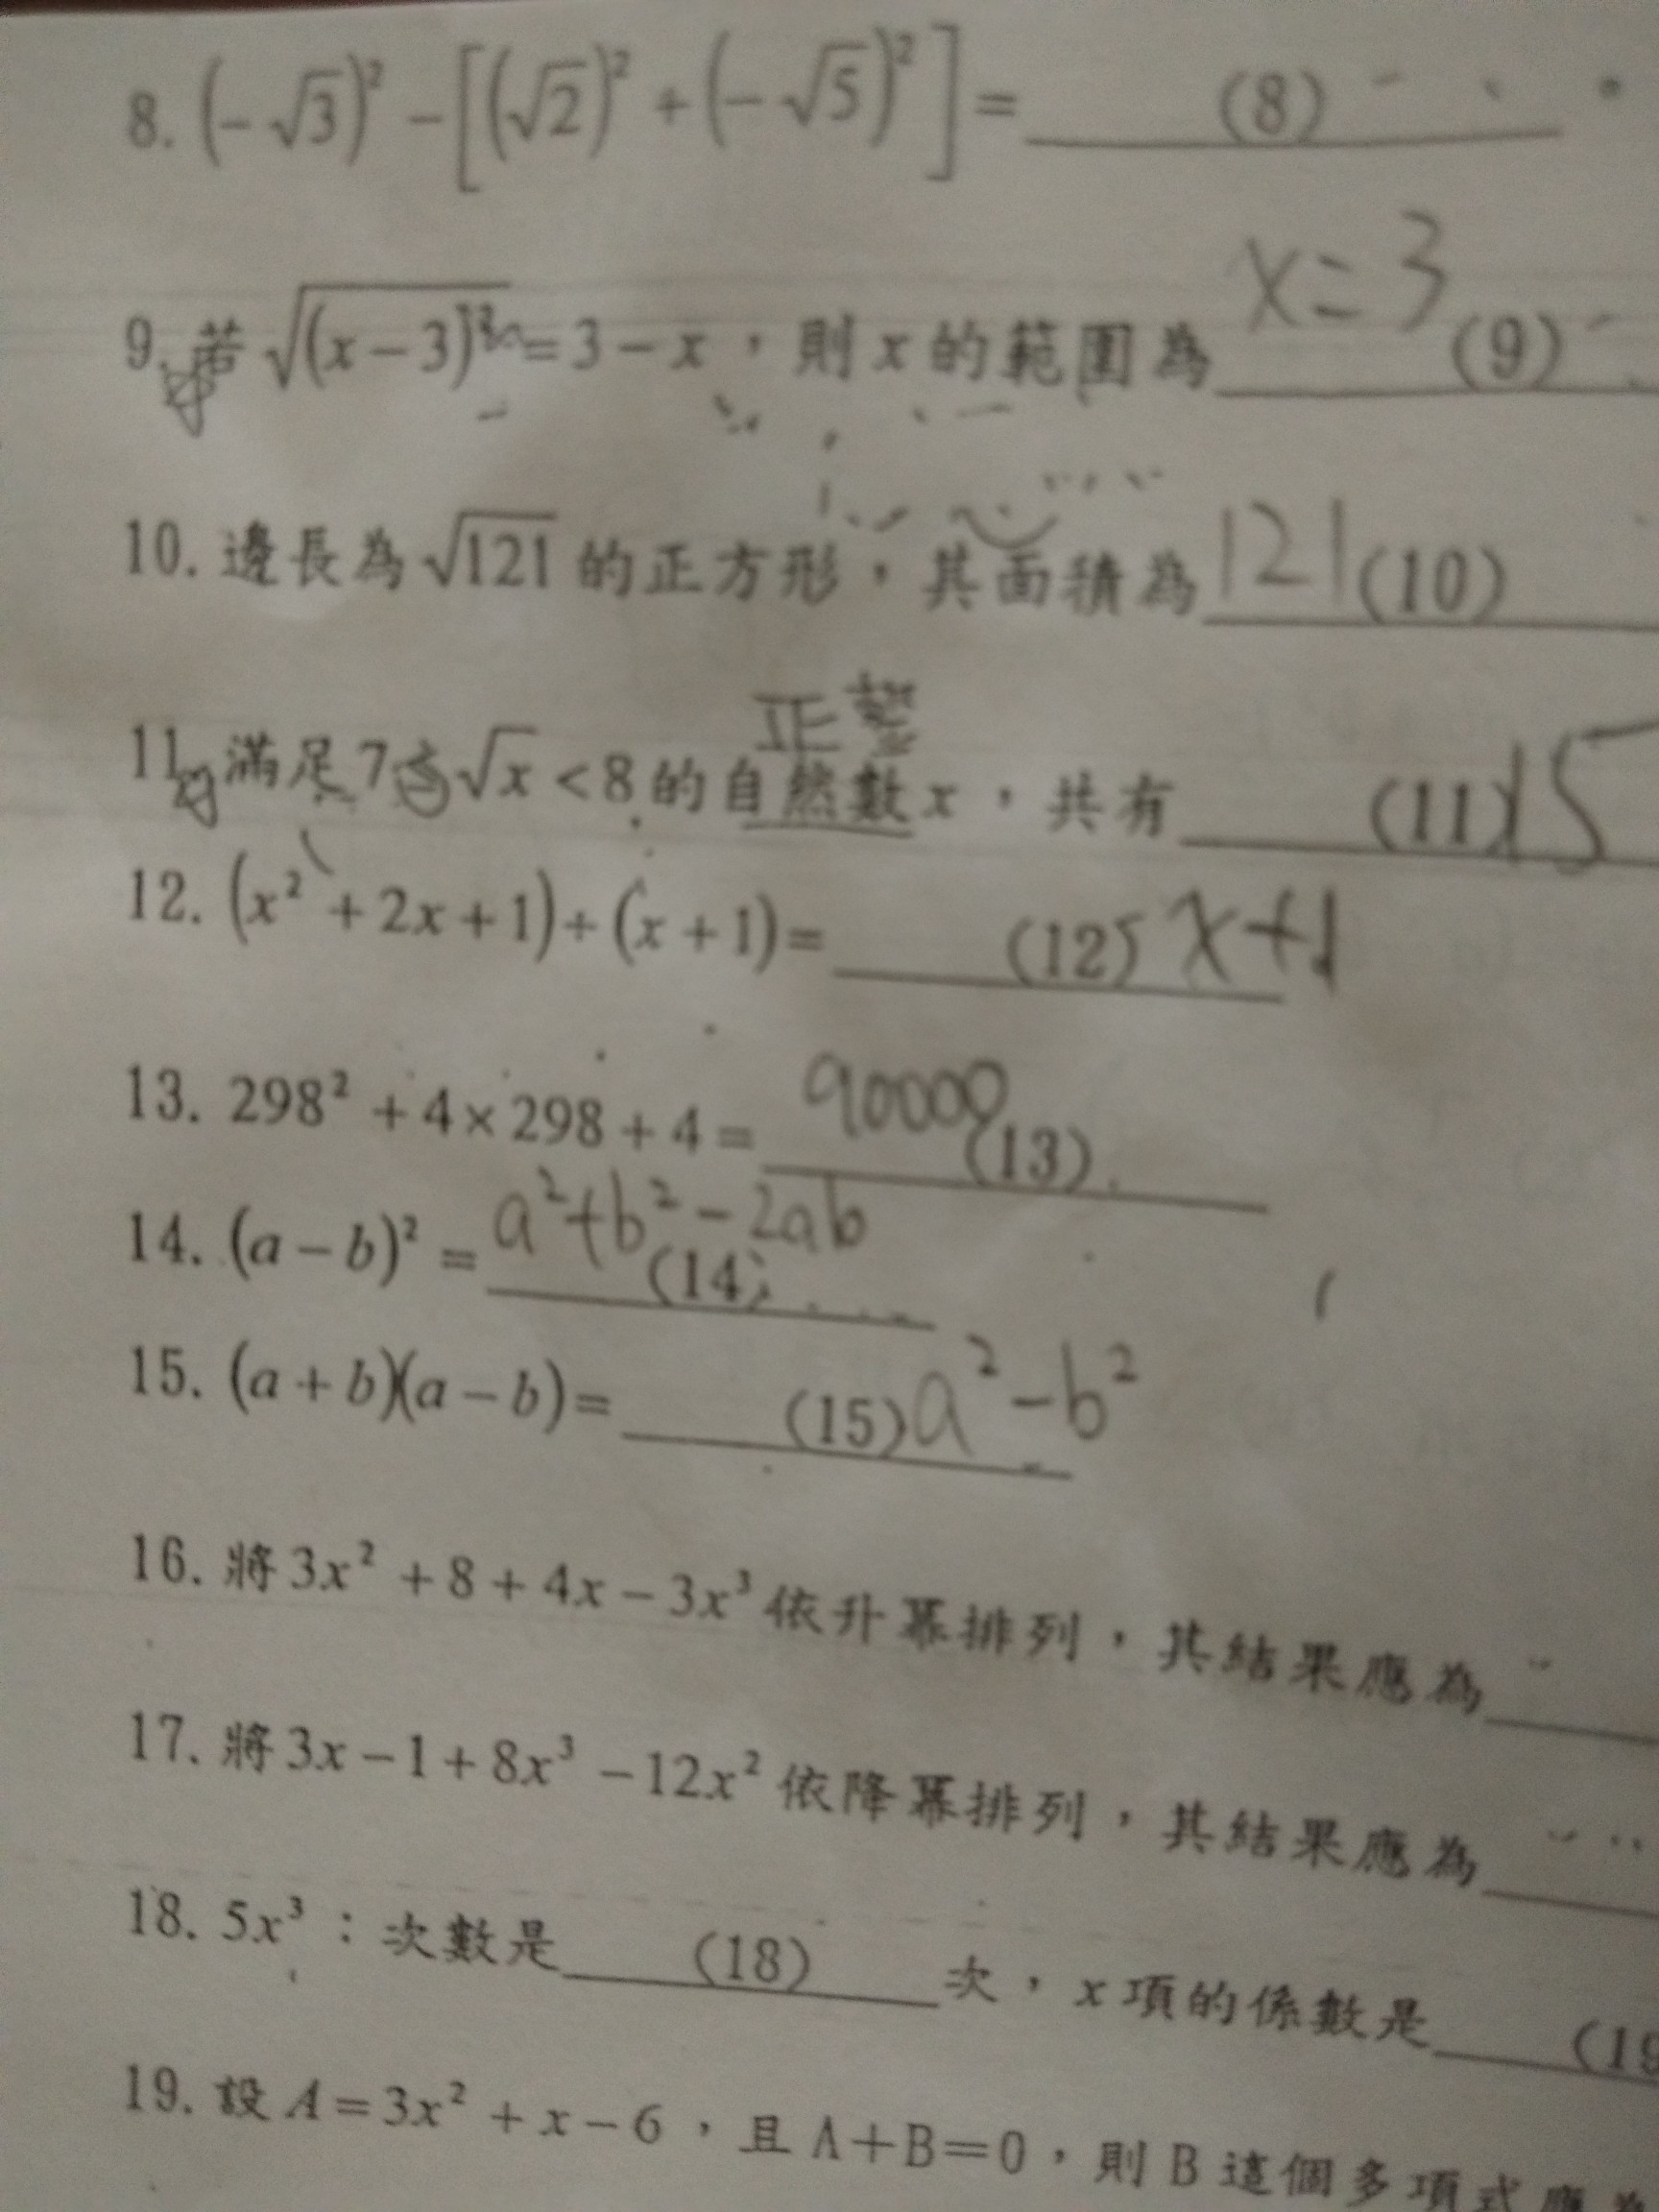 8. (-√3)² - [(√2)² + (-√5)²] = (8)
x=3
9. 若 √(x-3)² = 3-x，則 x 的範圍為 (9)
10. 邊長為 √121 的正方形，其面積為 121 (10)
正整
11. 滿足 7 √x < 8 的自然數 x，共有 (11) 15
12. (x² + 2x + 1) ÷ (x + 1) = (12) x+1
13. 298² + 4×298 + 4 = 90000 (13)
14. (a-b)² = a²+b²-2ab (14)
15. (a+b)(a-b) = (15) a²-b²
16. 將 3x² + 8 + 4x - 3x³ 依升冪排列，其結果應為
17. 將 3x - 1 + 8x³ - 12x² 依降冪排列，其結果應為
18. 5x³：次數是 (18) 次，x 項的係數是 (19
19. 設 A = 3x² + x - 6，且 A+B=0，則 B 這個多項式應為